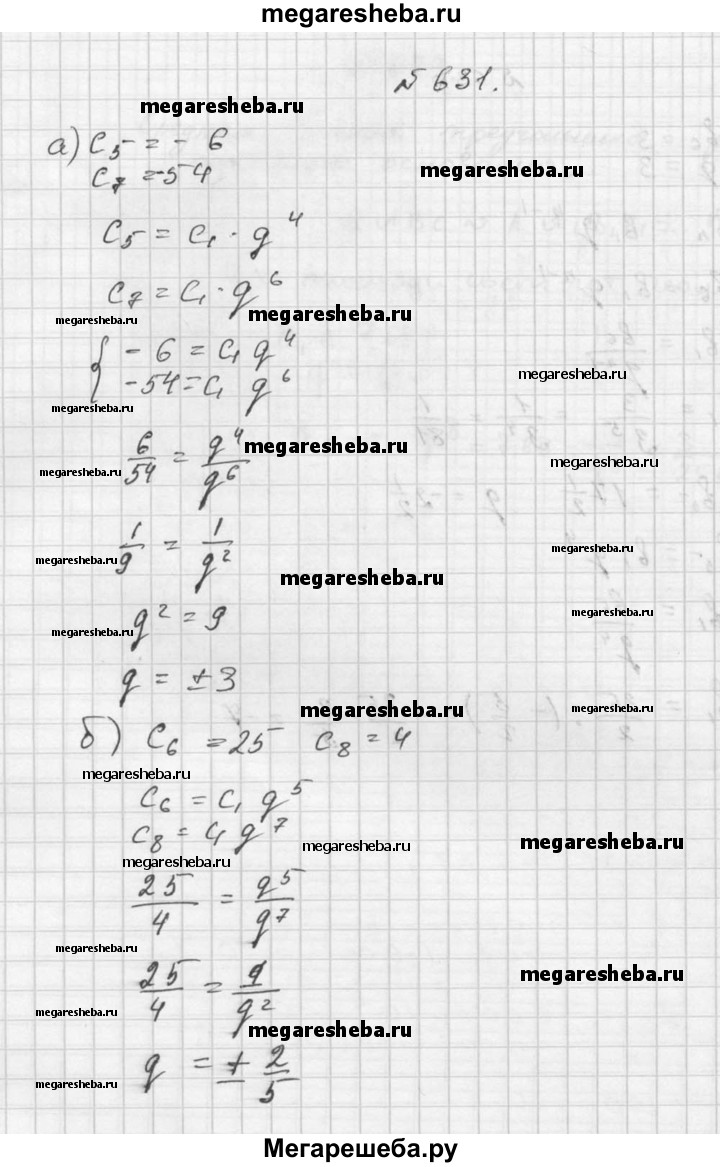 megaresheba.ru
№ 631.
megaresheba.ru
а) C₅ = - 6
megaresheba.ru
C₇ = -54
C₅ = C₁ · q⁴
C₇ = C₁ · q⁶
megaresheba.ru
megaresheba.ru
{ - 6 = C₁ q⁴
megaresheba.ru
-54 = C₁ q⁶
megaresheba.ru
6/54 = q⁴/q⁶
megaresheba.ru
megaresheba.ru
megaresheba.ru
1/9 = 1/q²
megaresheba.ru
megaresheba.ru
megaresheba.ru
q² = 9
megaresheba.ru
megaresheba.ru
q = ± 3
megaresheba.ru
megaresheba.ru
б) C₆ = 25 C₈ = 4
megaresheba.ru
C₆ = C₁ q⁵
C₈ = C₁ q⁷
megaresheba.ru
megaresheba.ru
megaresheba.ru
25/4 = q⁵/q⁷
megaresheba.ru
25/4 = 1/q²
megaresheba.ru
megaresheba.ru
megaresheba.ru
q = ± 2/5
megaresheba.ru
Мегарешеба.ру